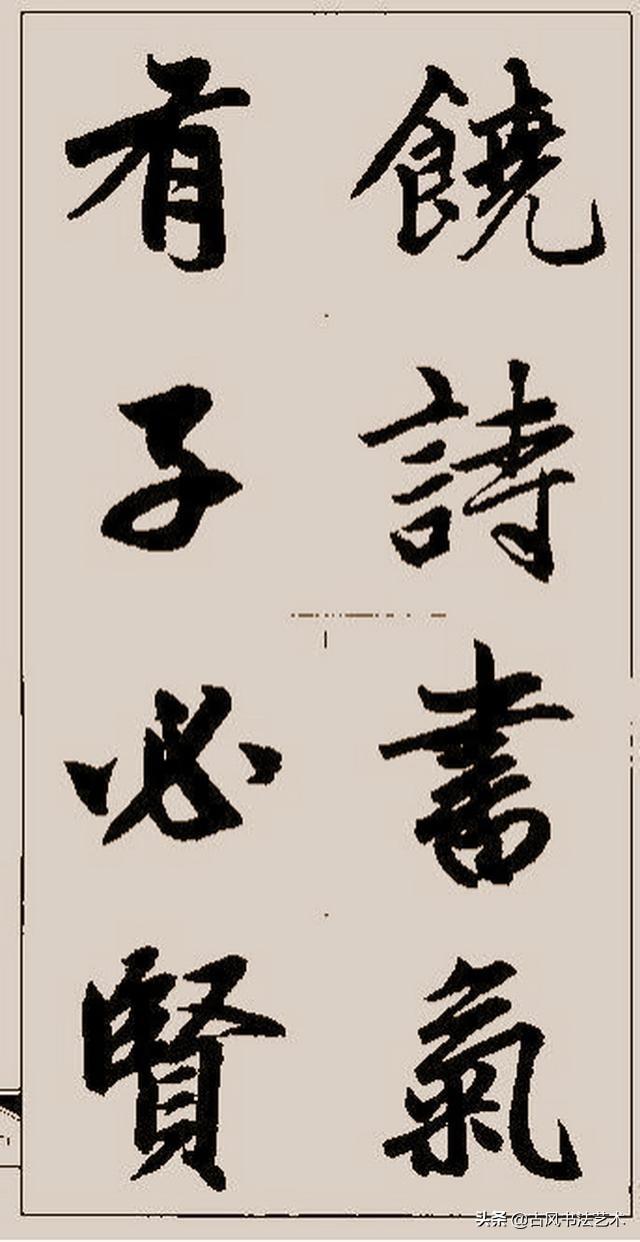 饒詩書氣
有子必賢
头条 @古风书法艺术